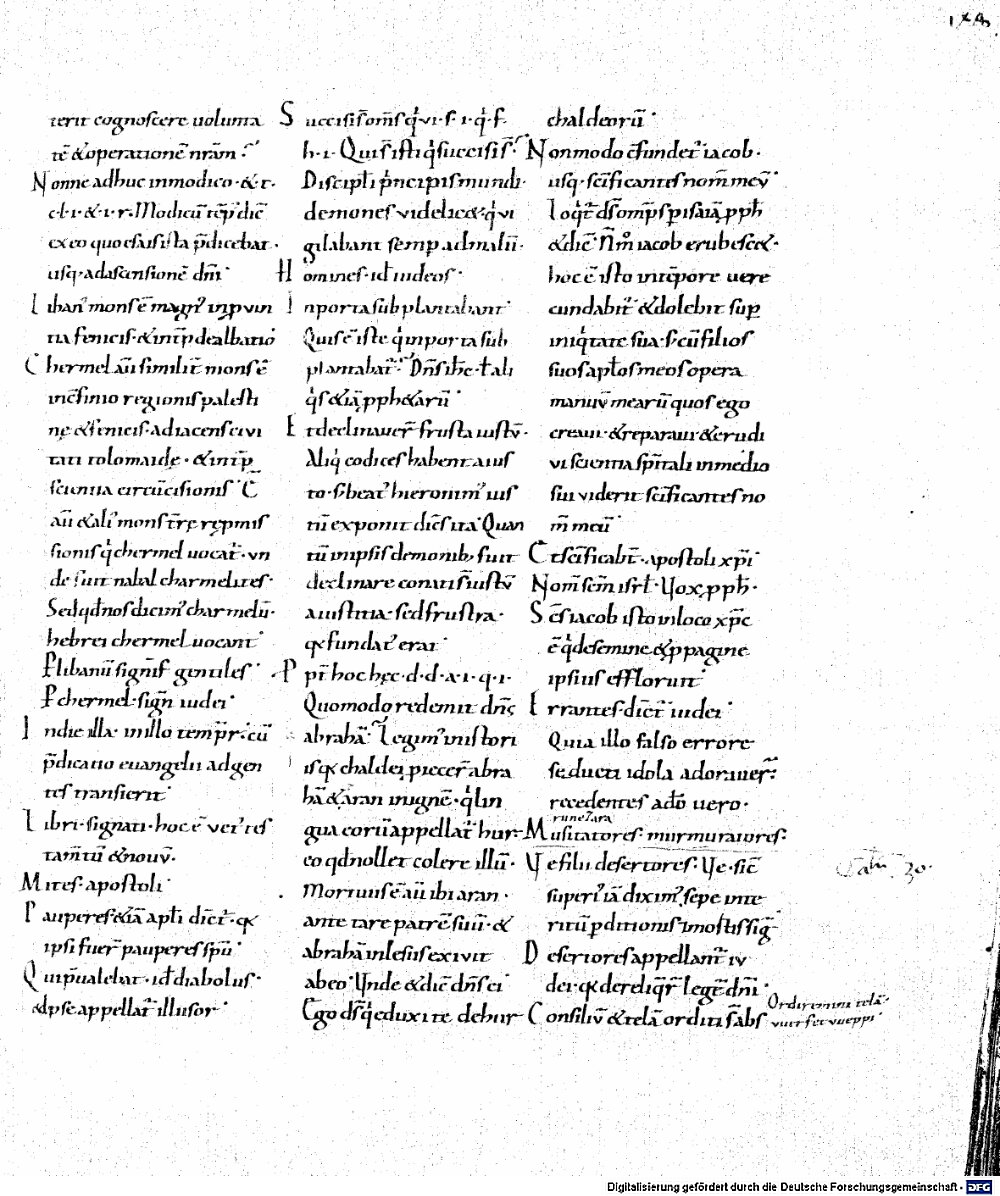 terit cognoscere uolunta
tē & operationē nrām ·
Nonne adhuc in modico · & t ·
c · l · i · & · i · r · Modicū tēp' diē
ex eo quo esaias ista p̄dicebat ·
usq · ad ascensionē dn̄i ·
Liban' mons ē magn' in puin
tia fenicis · & int̄p dealbatio
Chermel aū similit̄ mons ē
in cfinio regionis palesti
nę & fenicis adiacens ciui
tati tolomaidę · & int̄p
scientia circūcisionis · Ē
aū & ali' mons
sionis q̄ chermel uocat̄ · vn
de fuit nabal charmelites ·
Sed qd nos dicim' charmelū ·
hebrei chermel uocant ·
P libanū signif̄ gentiles ·
P chermel · sign̄ iudei ·
In die illa · in illo temp̄r · cū
p̄dicatio euangelii ad gen
tes transierit ·
Libri · signati · hoc ē uet' tes
tam̄tū & nouū ·
Mites · apostoli ·
Pauperes & iā apl̄i dicr̄t · q
ipsi fuer̄ pauperes sp̄u ·
Qui p̄ualebat · id diabolus ·
& ipse appellat̄ illusor ·
Succisi s̄ om̄s q'vi · s · i · q · f ·
h · i · Qui s̄ isti q' succisi s̄ ·
Discipl̄i p'ncipis mundi ·
demones videlic& q'vi
gilabant semp ad malū ·
Homines · id iudeos ·
In porta subplantabant ·
Quis ē iste q' in porta sub
plantabat̄ · Dn̄s ihc · t ali
q's & iā pph&arū ·
Et declinauer̄ frustra iustū ·
Aliq' codices habent a ius
to · s beat' hieronim' ius
tū exponit dicēs ita · Quan
tū in ipsis demonib; fuit
declinare conati s̄ iustū
a iustitia · sed frustra ·
q fundat' erat ·
Ppt̄ hoc hęc · d · d · a · i · q · i ·
Quomodo redemit dn̄s
abrahā · Legim' in istori
is q chaldei piecer̄ abra
hā & aran in ignē · q' lin
gua corū appellat̄ hur ·
eo qd noll& colere illū ·
Mortuus ē aū ibi aran ·
ante tare patrē suū · &
abrahā inlesus exivit
ab eo · Vnde & dic̄ dn̄s ei
Ego ds q' eduxi te de hur
chaldeorū ·
Non modo cfundet̄ iacob ·
usq · sc̄ificantes nom̄ meū ·
Loqt̄ ds omp̄s p isaiā pph
& dic̄ · Nm̄o iacob erubesc& ·
hoc ē isto in tēpore uere
cundabit̄ & dolebit sup
iniq'tate sua · s cū filios
suos apl̄os meos opera
manuū mearū quos ego
creaui · & reparaui & erudi
vi scientia spīr̄tali in medio
sui viderit sc̄ificantes no
m̄ meū ·
Et sc̄ificabt̄ · apostoli xp̄i ·
Nom̄ sc̄m isrl̄ · Vox pph ·
Sc̄s iacob isto in loco xp̄c
ē q' de semine & ppagine
ipsius effloruit ·
Errantes · dicr̄t iudei ·
Quia illo falso errore
seducti idola adorauer̄ ·
recedentes a dō uero ·
runezara
Musitatores · murmuratores ·
Ve filii desertores · Ve · sic̄
superi' iā dixim' sepe inte
ritū pditionis in ostis sig̅
Desertores appellant̄ iu
dei · q dereliq'r̄ legē dn̄i ·
Consiliū & telā orditi s̄ abs
Ordiremini telā ·
Digitalisierung gefördert durch die Deutsche Forschungsgemeinschaft · DFG